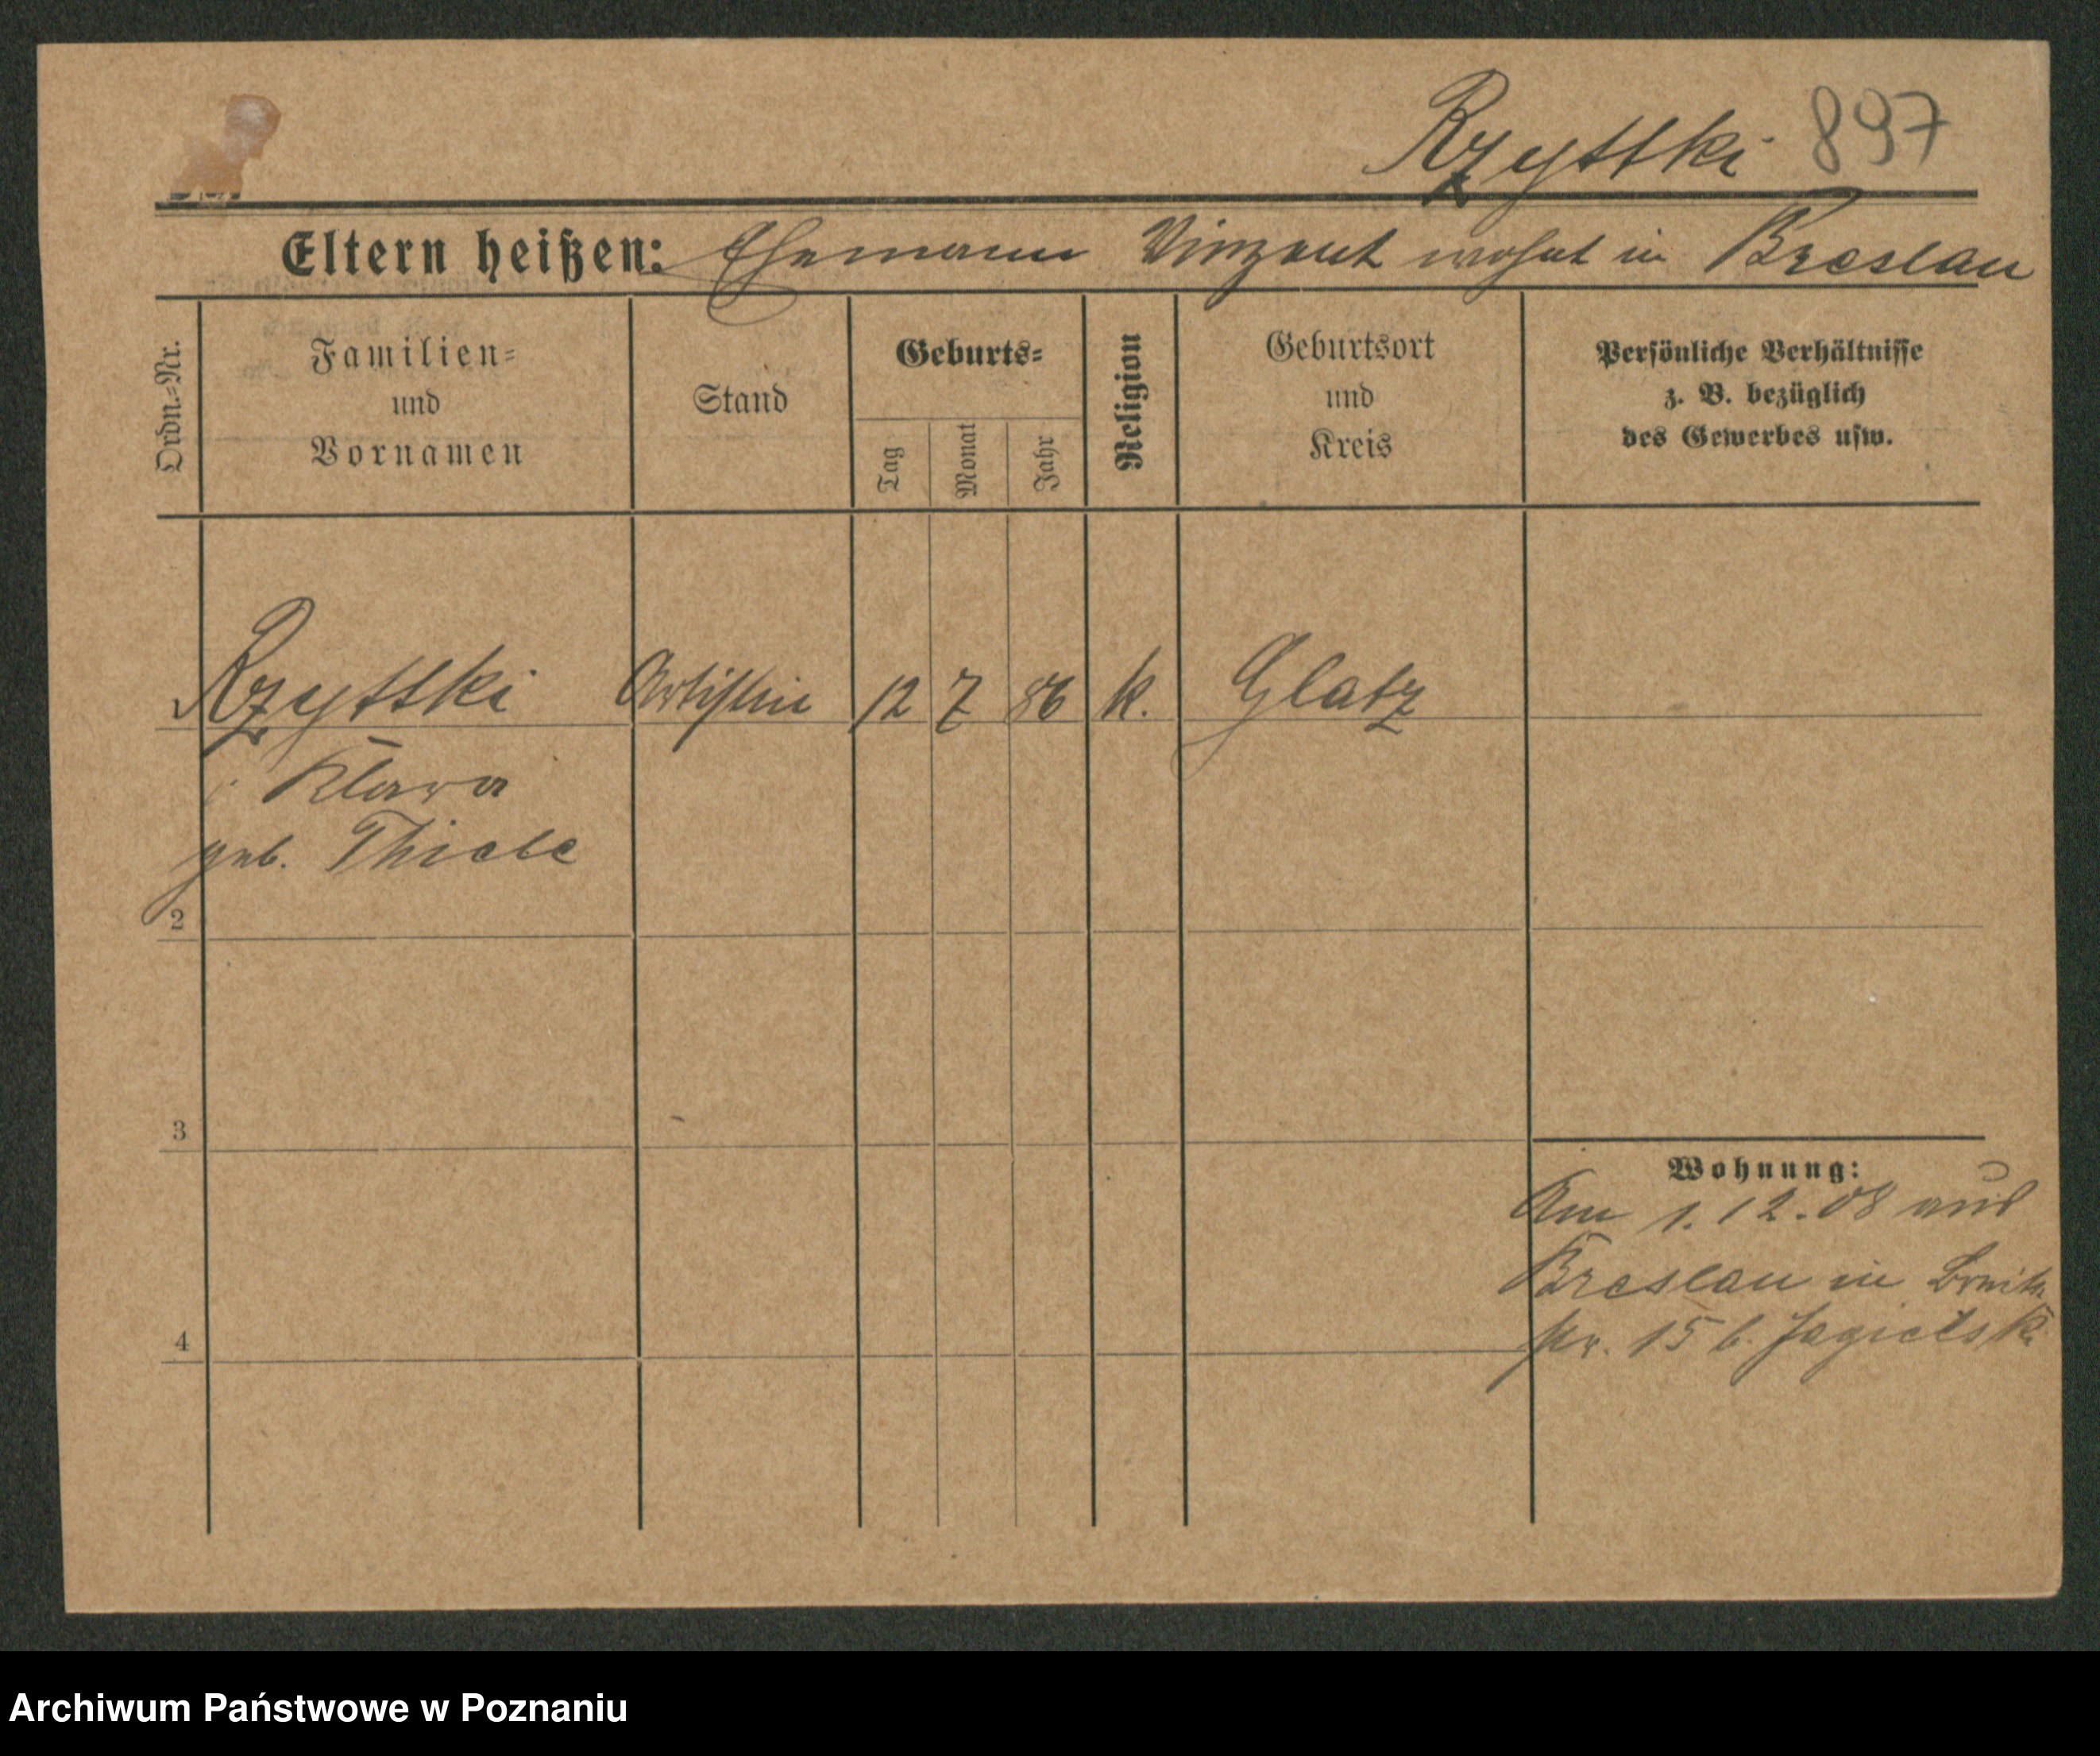 Rzyttki 897
Eltern heißen: Ehemann Vinzent wohnt in Breslau
Ordn.-Nr.
Familien-
und
Vornamen
Stand
Geburts-
Tag
Monat
Jahr
Religion
Geburtsort
und
Kreis
Persönliche Verhältnisse
z. B. bezüglich
des Gewerbes usw.
Rzyttki Artistin 12 7 86 k. Glatz
Klara
geb. Thiele
2
3
4
Wohnung:
Am 1.12.08 aus
Breslau in
15 b. Jagielski
Archiwum Państwowe w Poznaniu